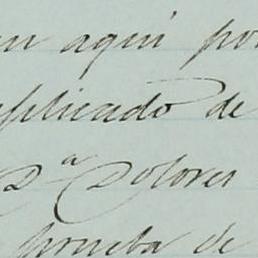 aqui por
plicado de
Dª Dolores
prueba de